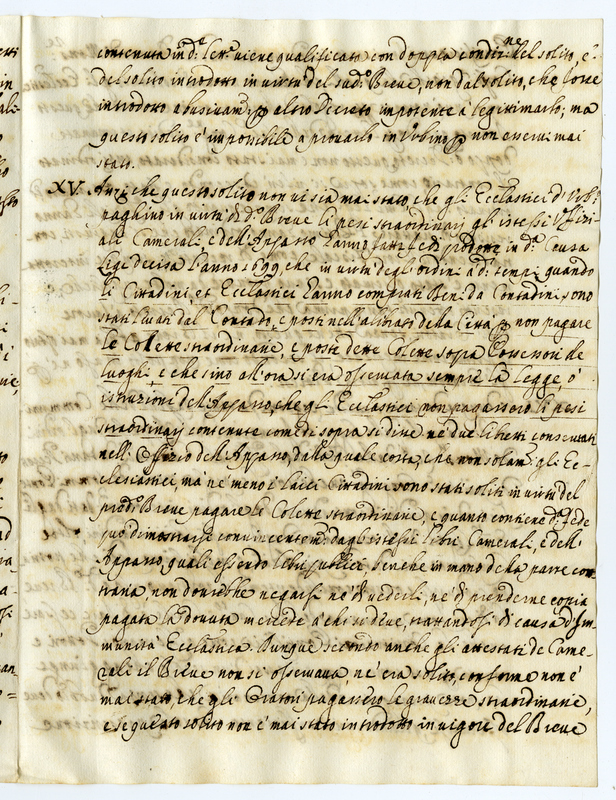 contenuta in d.ª let.ª viene qualificato con doppia condiz.ne del solito, e'
del solito introdotto in virtù del sud.º Breve, non dal solito, che fosse
introdotto abusivam.e p altro Decreto impotente a legitimarlo; ma
questo solito è impossibile a provarlo in Urbino p non esservi mai
stato.
XV. Anzi che questo solito non vi sia mai stato, che gli Ecclastici d'Urb.º
paghino in virtù di d.º Breve li pesi straordinarij gli istessi Uffizi-
ali Camerali, e dell'Appasso hanno fatti fedi in d.ª Causa
decisa l'anno 1699, che in virtù degl'ordini a d.i tempi quando
li Cittadini, et Ecclastici hanno comprati Beni da Contadini sono
stati levati dal Contado, e posti nell'alibrato della Città p non pagare
le Collette straordinarie, e poste dette Colette sopra Possessori de
luoghi, e che sino all'ora si era osservata sempre la legge, ò
istruzioni dell'Appasso, che gli Ecclastici non pagassero li pesi
straordinarij contenute come di sopra si dice ne due libretti conservati
nell'Offizio dell'Appasso, dalla quale costa, che non solam.e gli Ec-
clesiastici, mà nè meno i laici Cittadini sono stati soliti in virtù del
pred.º Breve pagare le Colette straordinarie, e quanto contiene d.ª fede
può dimostrarsi convincentem.e dagl'istessi libri Camerali, e dell'
Appasso, quali essendo libri publici benche in mano della parte con-
traria, non dovrebbe negarsi nè di vederli, nè di prenderne copia
pagata la dovuta mercede à chi si deve, trattandosi di causa d'Im-
munità Ecclastica. Dunque secondo anche gli attestati de Came-
rali il Breve non si osservava, nè era solito, conforme non è
mai stato, che gli Oratori pagassero le gravezze straordinarie,
e se questo solito non è mai stato introdotto in vigore del Breve